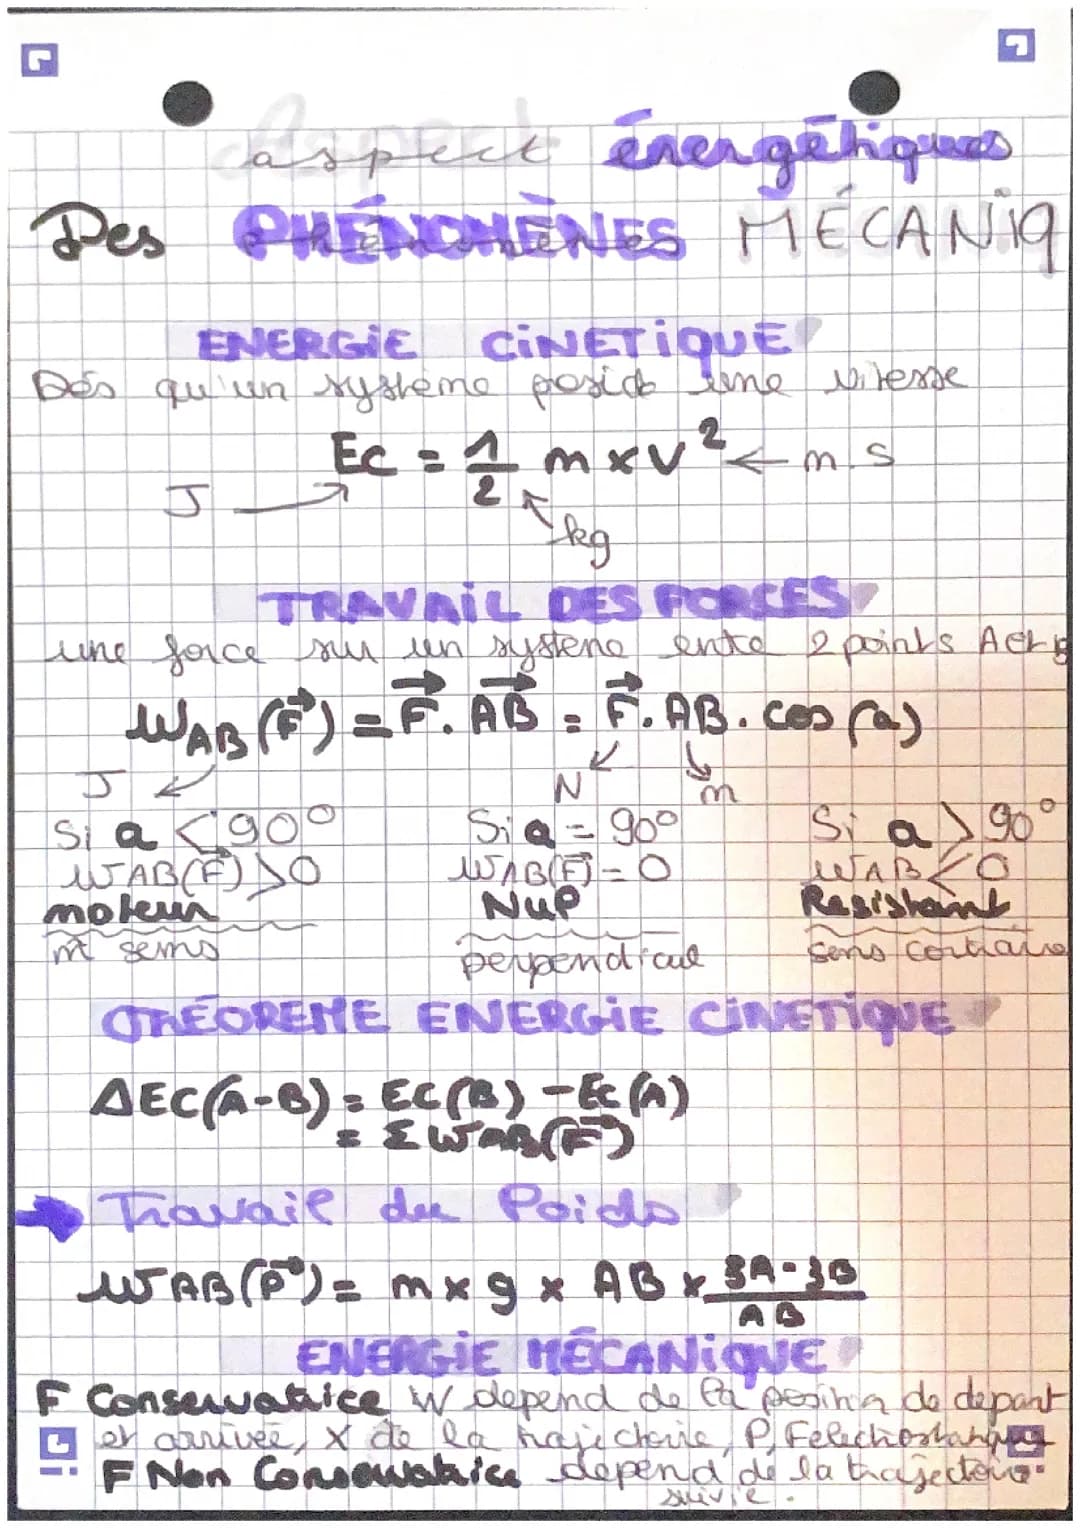 aspect énergétiques
Des PHÉNOMÈNES MÉCANIQ
ENERGIE CINETIQUE
Dès qu'un système posède une vitesse
Ec = 1/2 m x v² ← m.s
J
kg
TRAVAIL DES FORCES
une force sur un système ente 2 points A et B
WAB (F⃗) = F⃗. AB⃗ = F⃗. AB. cos (a)
J N m
Si a < 90° Si a = 90° Si a > 90°
WAB(F⃗) > 0 WAB(F⃗) = 0 WAB < 0
moteur Nul Resistant
m̂ sens perpendicul sens contraire
THÉOREME ENERGIE CINETIQUE
ΔEC(A-B) = EC(B) - Ec(A)
= Σ WAB(F⃗)
Travail du Poids
WAB(P⃗) = m x g x AB x (zA - zB)/AB
ENERGIE MÉCANIQUE
F Conservatrice W depend de la position de depart
et arrivée, X de la trajectoire, P, Felectrostatiques
F Non Conservatrice depend de la trajectoire
suivie.